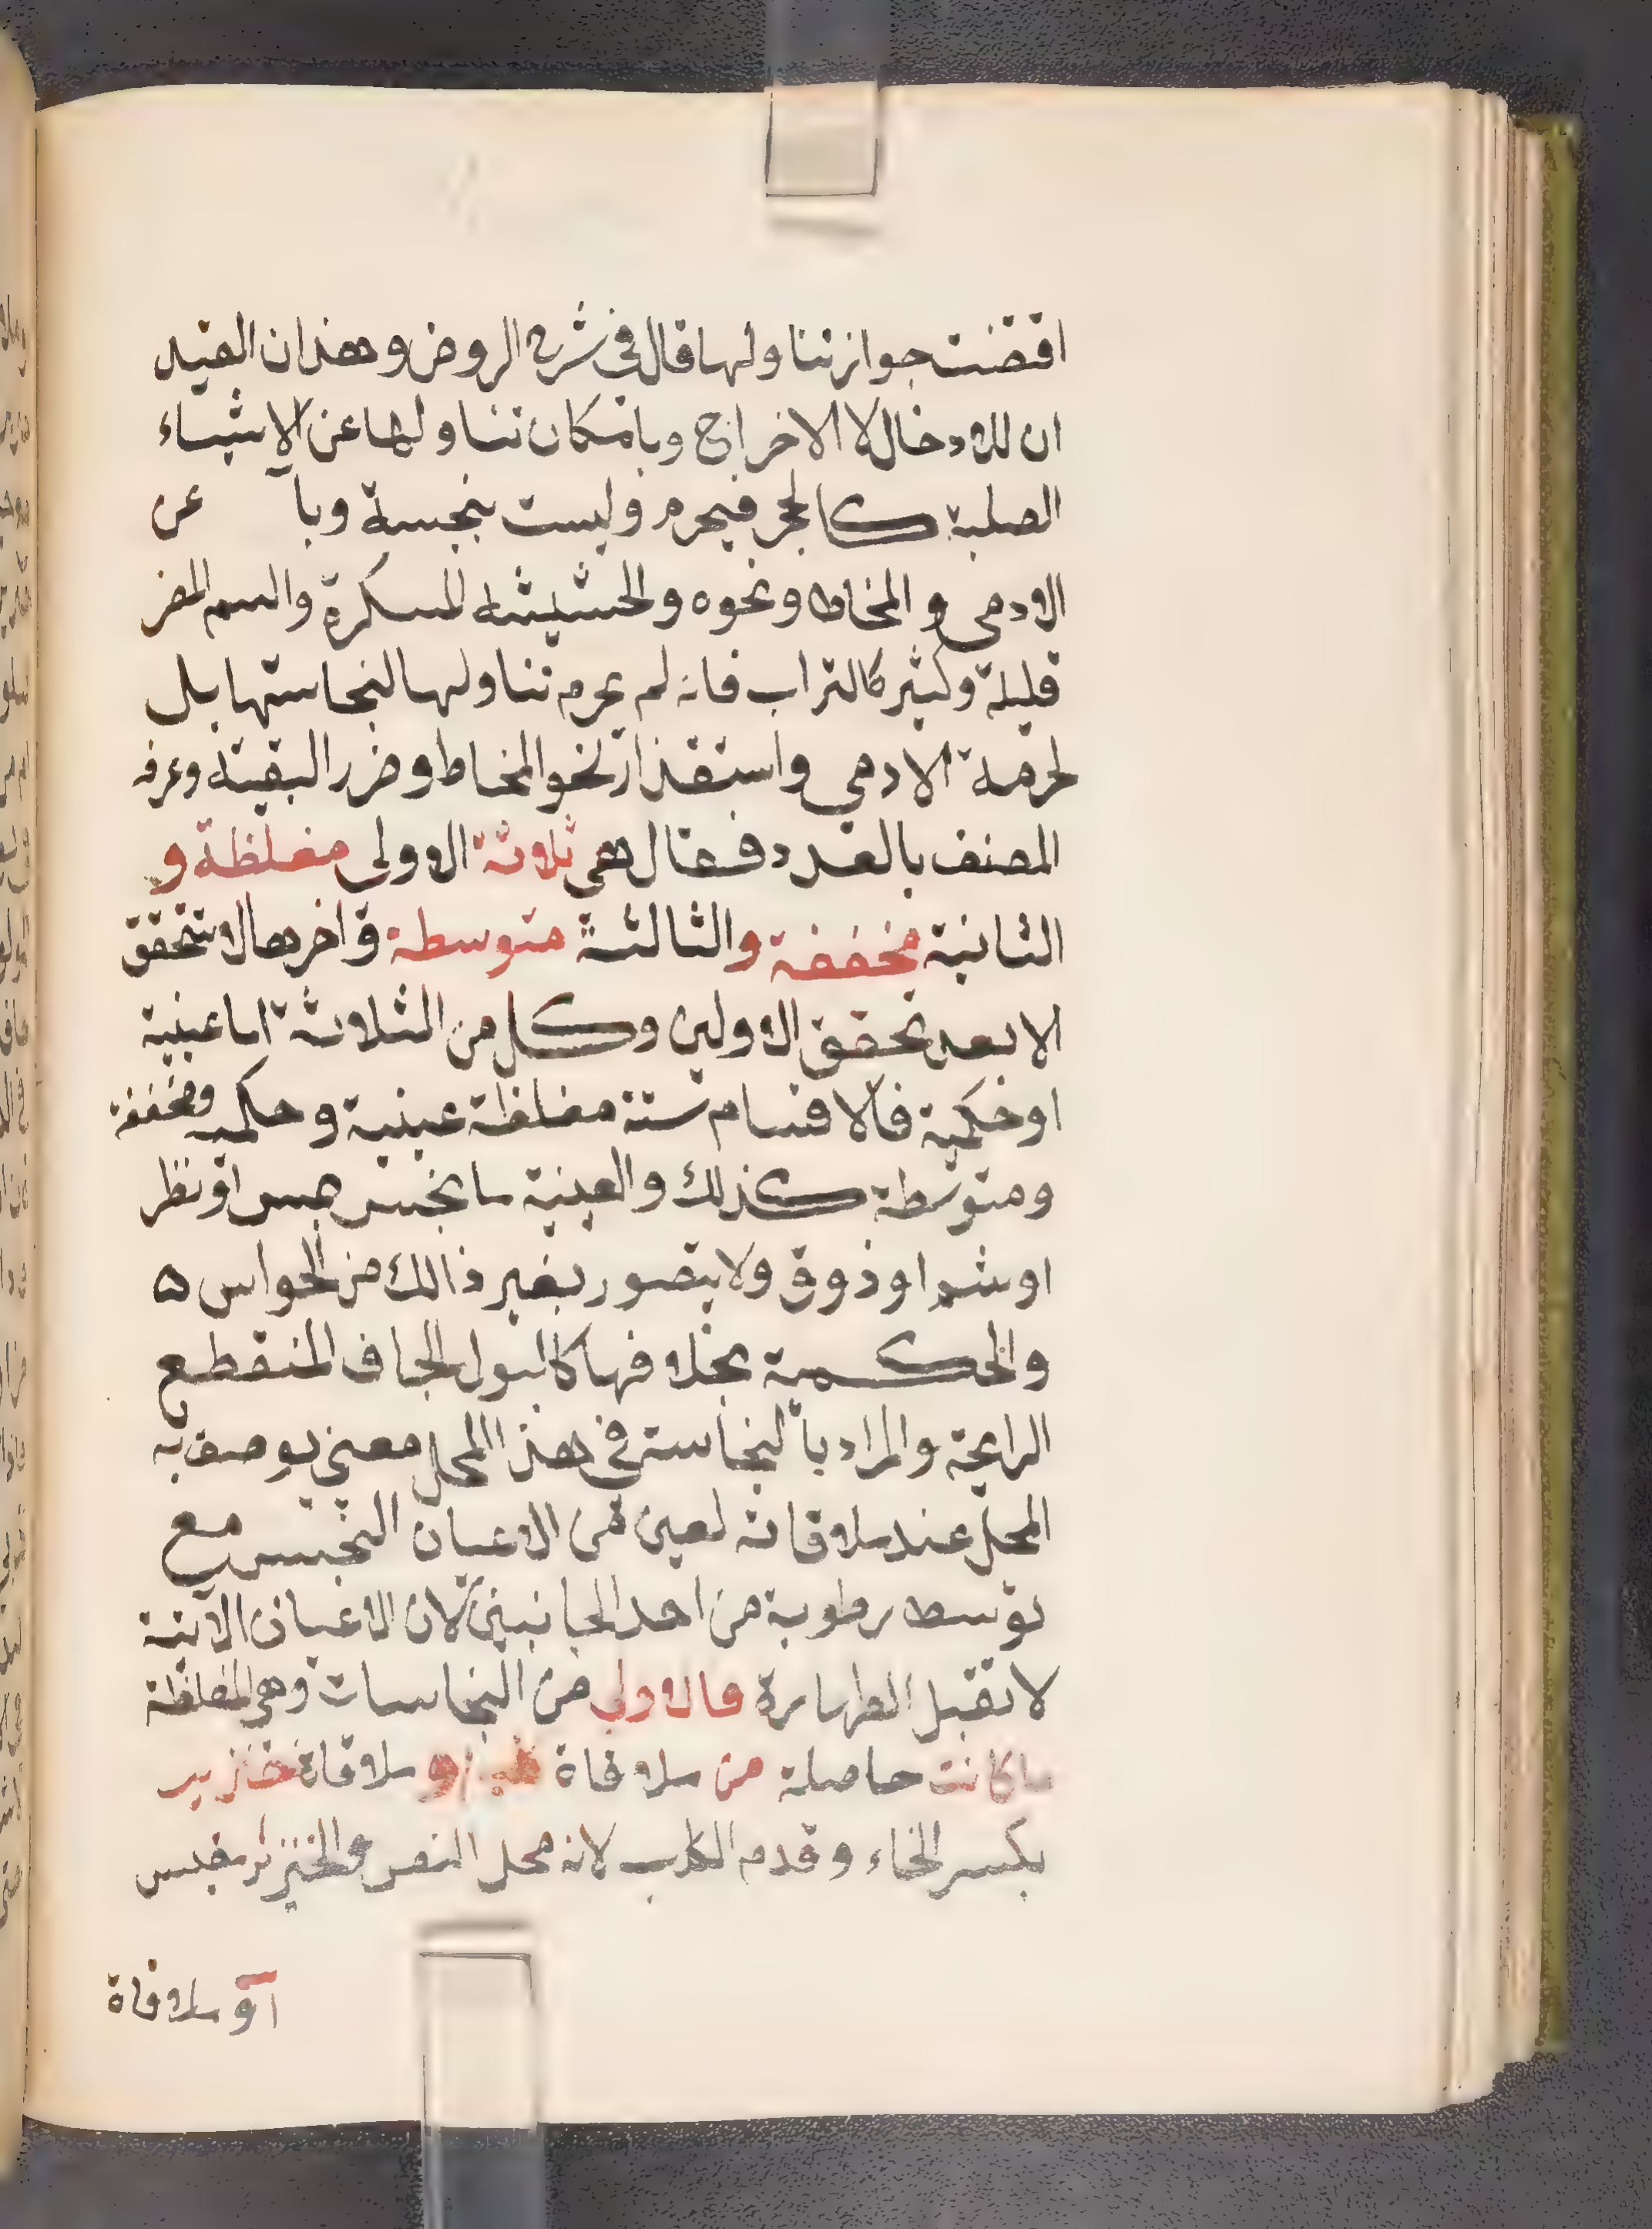 اقتضت جواز تناولها قال في شرح الروض وهذان القيد
ان للادخال لا الاخراج وبامكان تناولها عن الاشياء
الصلبة كالحجر فيحرم وليست بنجسة وبا عن
الادمي والمخاط ونحوه والحشيشة المسكرة والسم المضر
قليلة وكثير كالتراب فانه لم يحرم تناولها لنجاستها بل
لحرمة الادمي واستقذار نحو المخاط وضرر البقية وعرفه
المصنف بالعدد فقال هي ثلاثة الاولى مغلظة و
الثانية مخففة والثالثة متوسطة واخرها لا تتحقق
الا بعد تحقق الاولين وكل من الثلاثة اما عينية
او حكمية فالاقسام ستة مغلظة عينية وحكمية ومخففة
ومتوسطة كذلك والعينية ما نجس بجس او نظر
او شم او ذوق ولا يتصور بغير ذالك من الحواس ه
والحكمية بخلافها كالبول الجاف المنقطع
الرايحة والمراد بالنجاسة في هذا المحل معنى يوصف به
المحل عند ملاقاته لعين من الاعيان النجس مع
توسط رطوبة من احد الجانبين لان الاعيان الاتية
لا تقبل الطهارة فالاولى من النجاسات وهي المغلظة
ما كانت حاصلة من ملاقاة او ملاقاة خنزير
بكسر الخاء وقدم الكلب لانه محل النص والخنزير مقيس
او ملاقاة